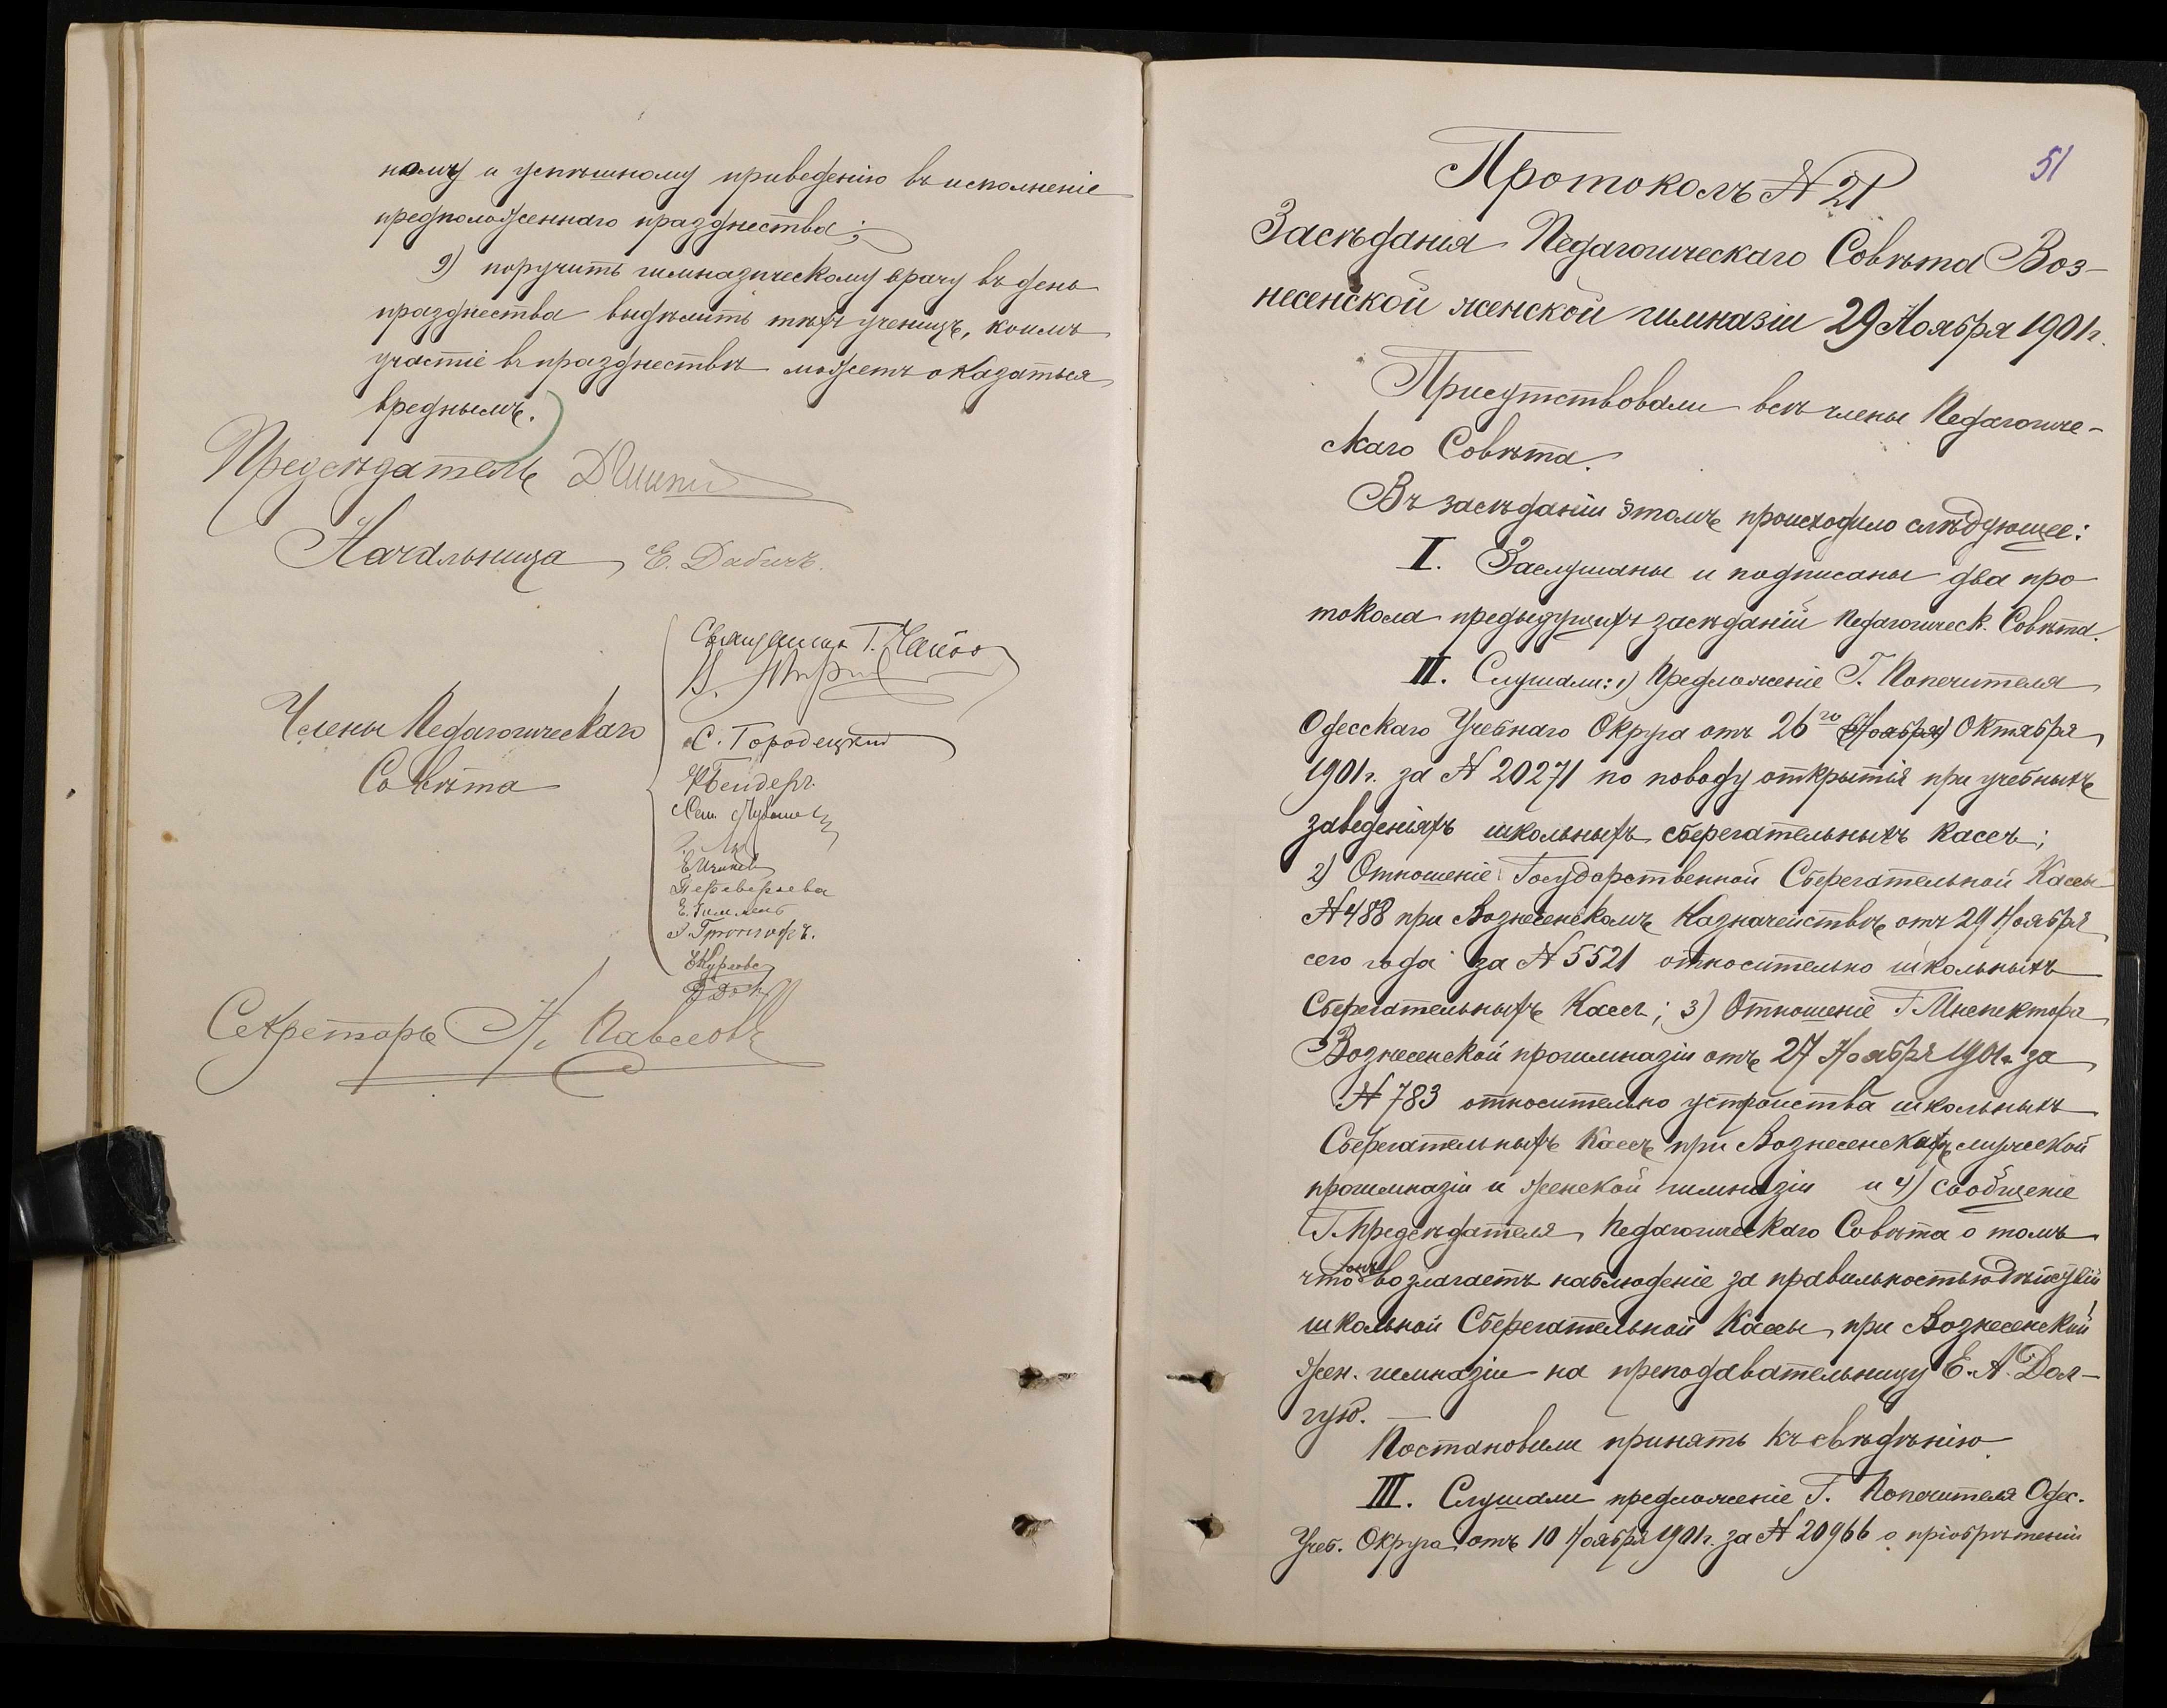 ному и успѣшному приведенію въ исполненіе
предположеннаго празднества;
9) поручить гимназическому врачу въ день
празднества выдѣлить тѣхъ ученицъ, коимъ
участіе въ празднествѣ можетъ оказаться
вреднымъ.
Предсѣдатель
Начальница Е. Дабичъ.
Священникъ Г.
Члены Педагогическаго
Совѣта
С. Городецкій
Бендеръ.
Переверзева
Е. Гиммель
Секретарь Н. Павловъ
51
Протоколъ № 21
Засѣданія Педагогическаго Совѣта Воз-
несенской женской гимназіи 29 Ноября 1901 г.
Присутствовали всѣ члены Педагогиче-
скаго Совѣта.
Въ засѣданіи этомъ происходило слѣдующее:
I. Заслушаны и подписаны два про
токола предыдущихъ засѣданій Педагогическ. Совѣта.
II. Слушали: 1) Предложеніе Г. Попечителя
Одесскаго Учебнаго Округа отъ 26го (Ноября) Октября
1901 г. за № 20271 по поводу открытія при учебныхъ
заведеніяхъ школьныхъ сберегательныхъ кассъ;
2) Отношеніе Государственной Сберегательной Кассы
№ 488 при Вознесенскомъ Казначействѣ отъ 29 Ноября
сего года за № 5521 относительно школьныхъ
Сберегательныхъ Кассъ; 3) Отношеніе Г Инспектора
Вознесенской прогимназіи отъ 27 Ноября 1901 г. за
№ 783 относительно устройства школьныхъ
Сберегательныхъ Кассъ при Вознесенскихъ мужской
прогимназіи и женской гимназіи и 4) сообщеніе
Г. Предсѣдателя Педагогическаго Совѣта о томъ
что онъ возлагаетъ наблюденіе за правильностью дѣйствій
школьной Сберегательной Кассы при Вознесенской
жен. гимназіи на преподавательницу Е. А. Дол-
гую.
Постановили принять къ свѣдѣнію
III. Слушали предложеніе Г. Попечителя Одес.
Учеб. Округа отъ 10 Ноября 1901 г. за № 20966 о пріобрѣтеніи